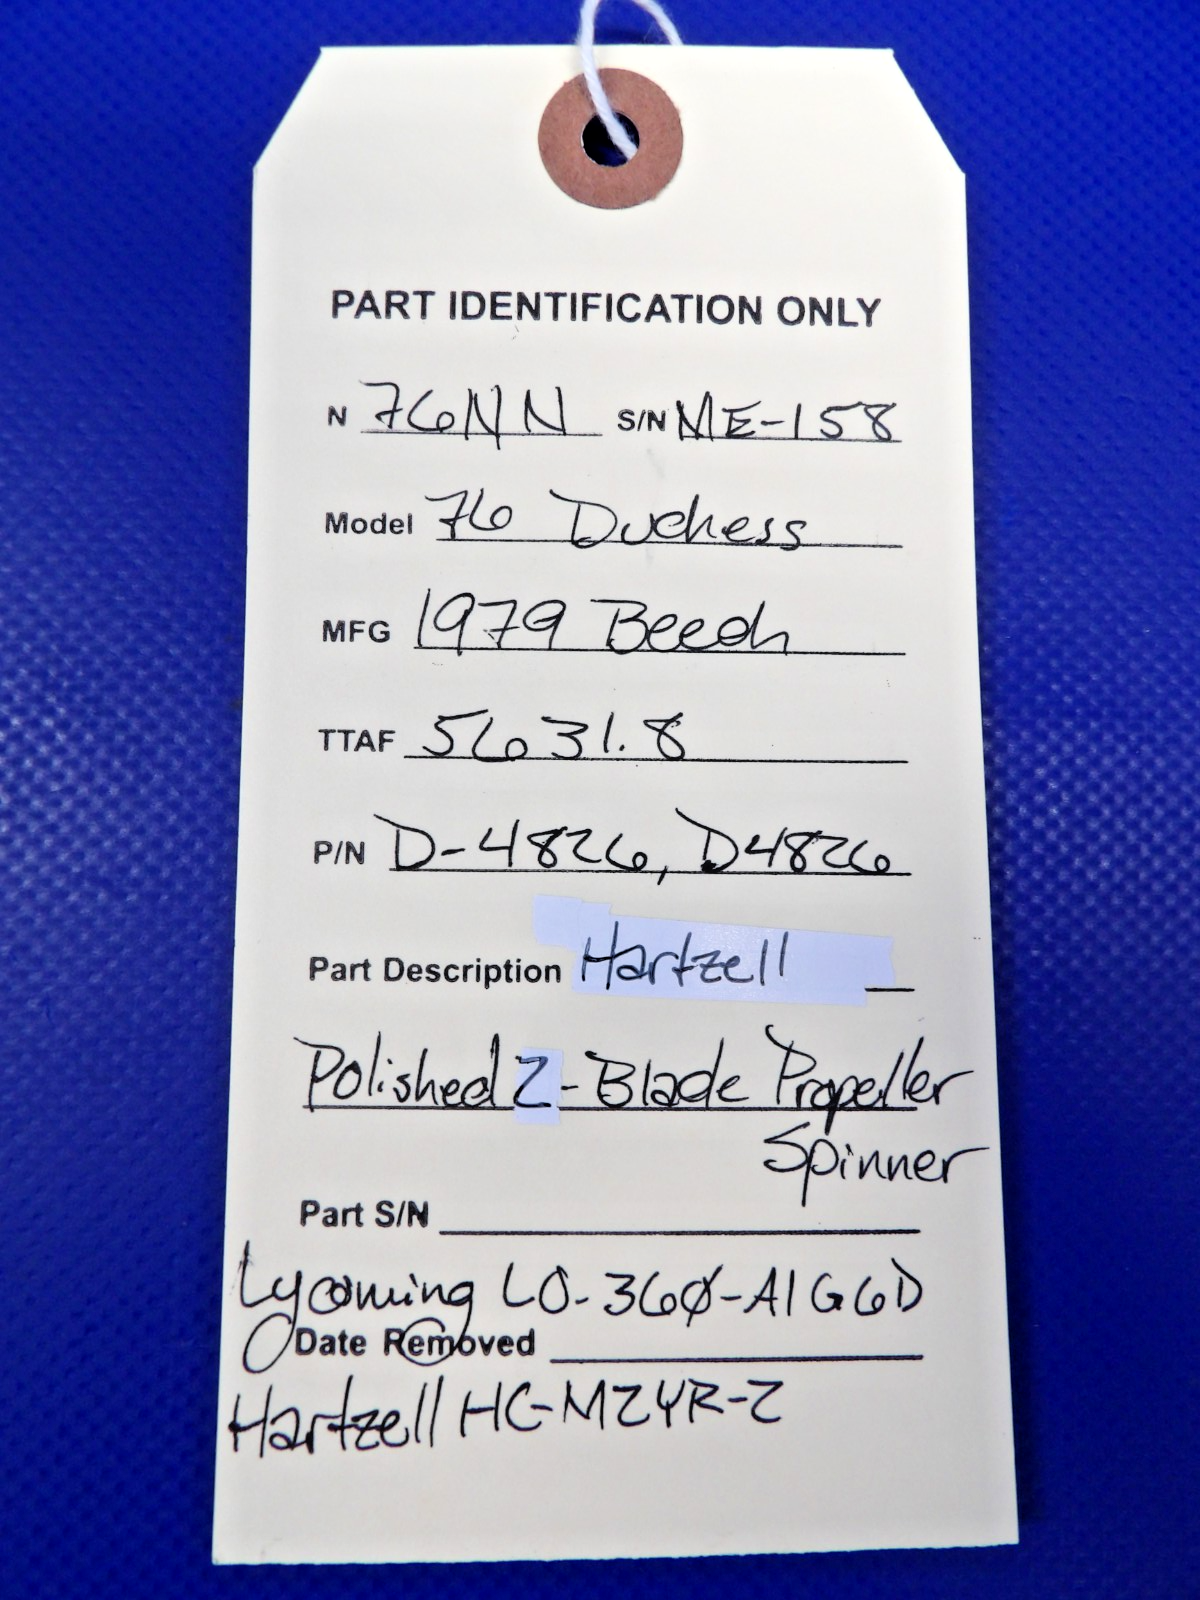 PART IDENTIFICATION ONLY
N 76NN S/N ME-158
Model 76 Duchess
MFG 1979 Beech
TTAF 5631.8
P/N D-4826, D4826
Part Description Hartzell
Polished 2-Blade Propeller
Spinner
Part S/N
Lycoming LO-360-A1G6D
Date Removed
Hartzell HC-M2YR-2